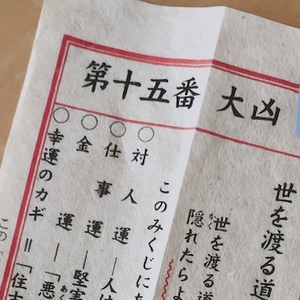 第十五番 大凶
世を渡る道
世を渡る道
隠れたらよ
このみくじに
○対人運―人
○仕事運―堅実
○金運―「悪
○幸運のカギ＝「住
この